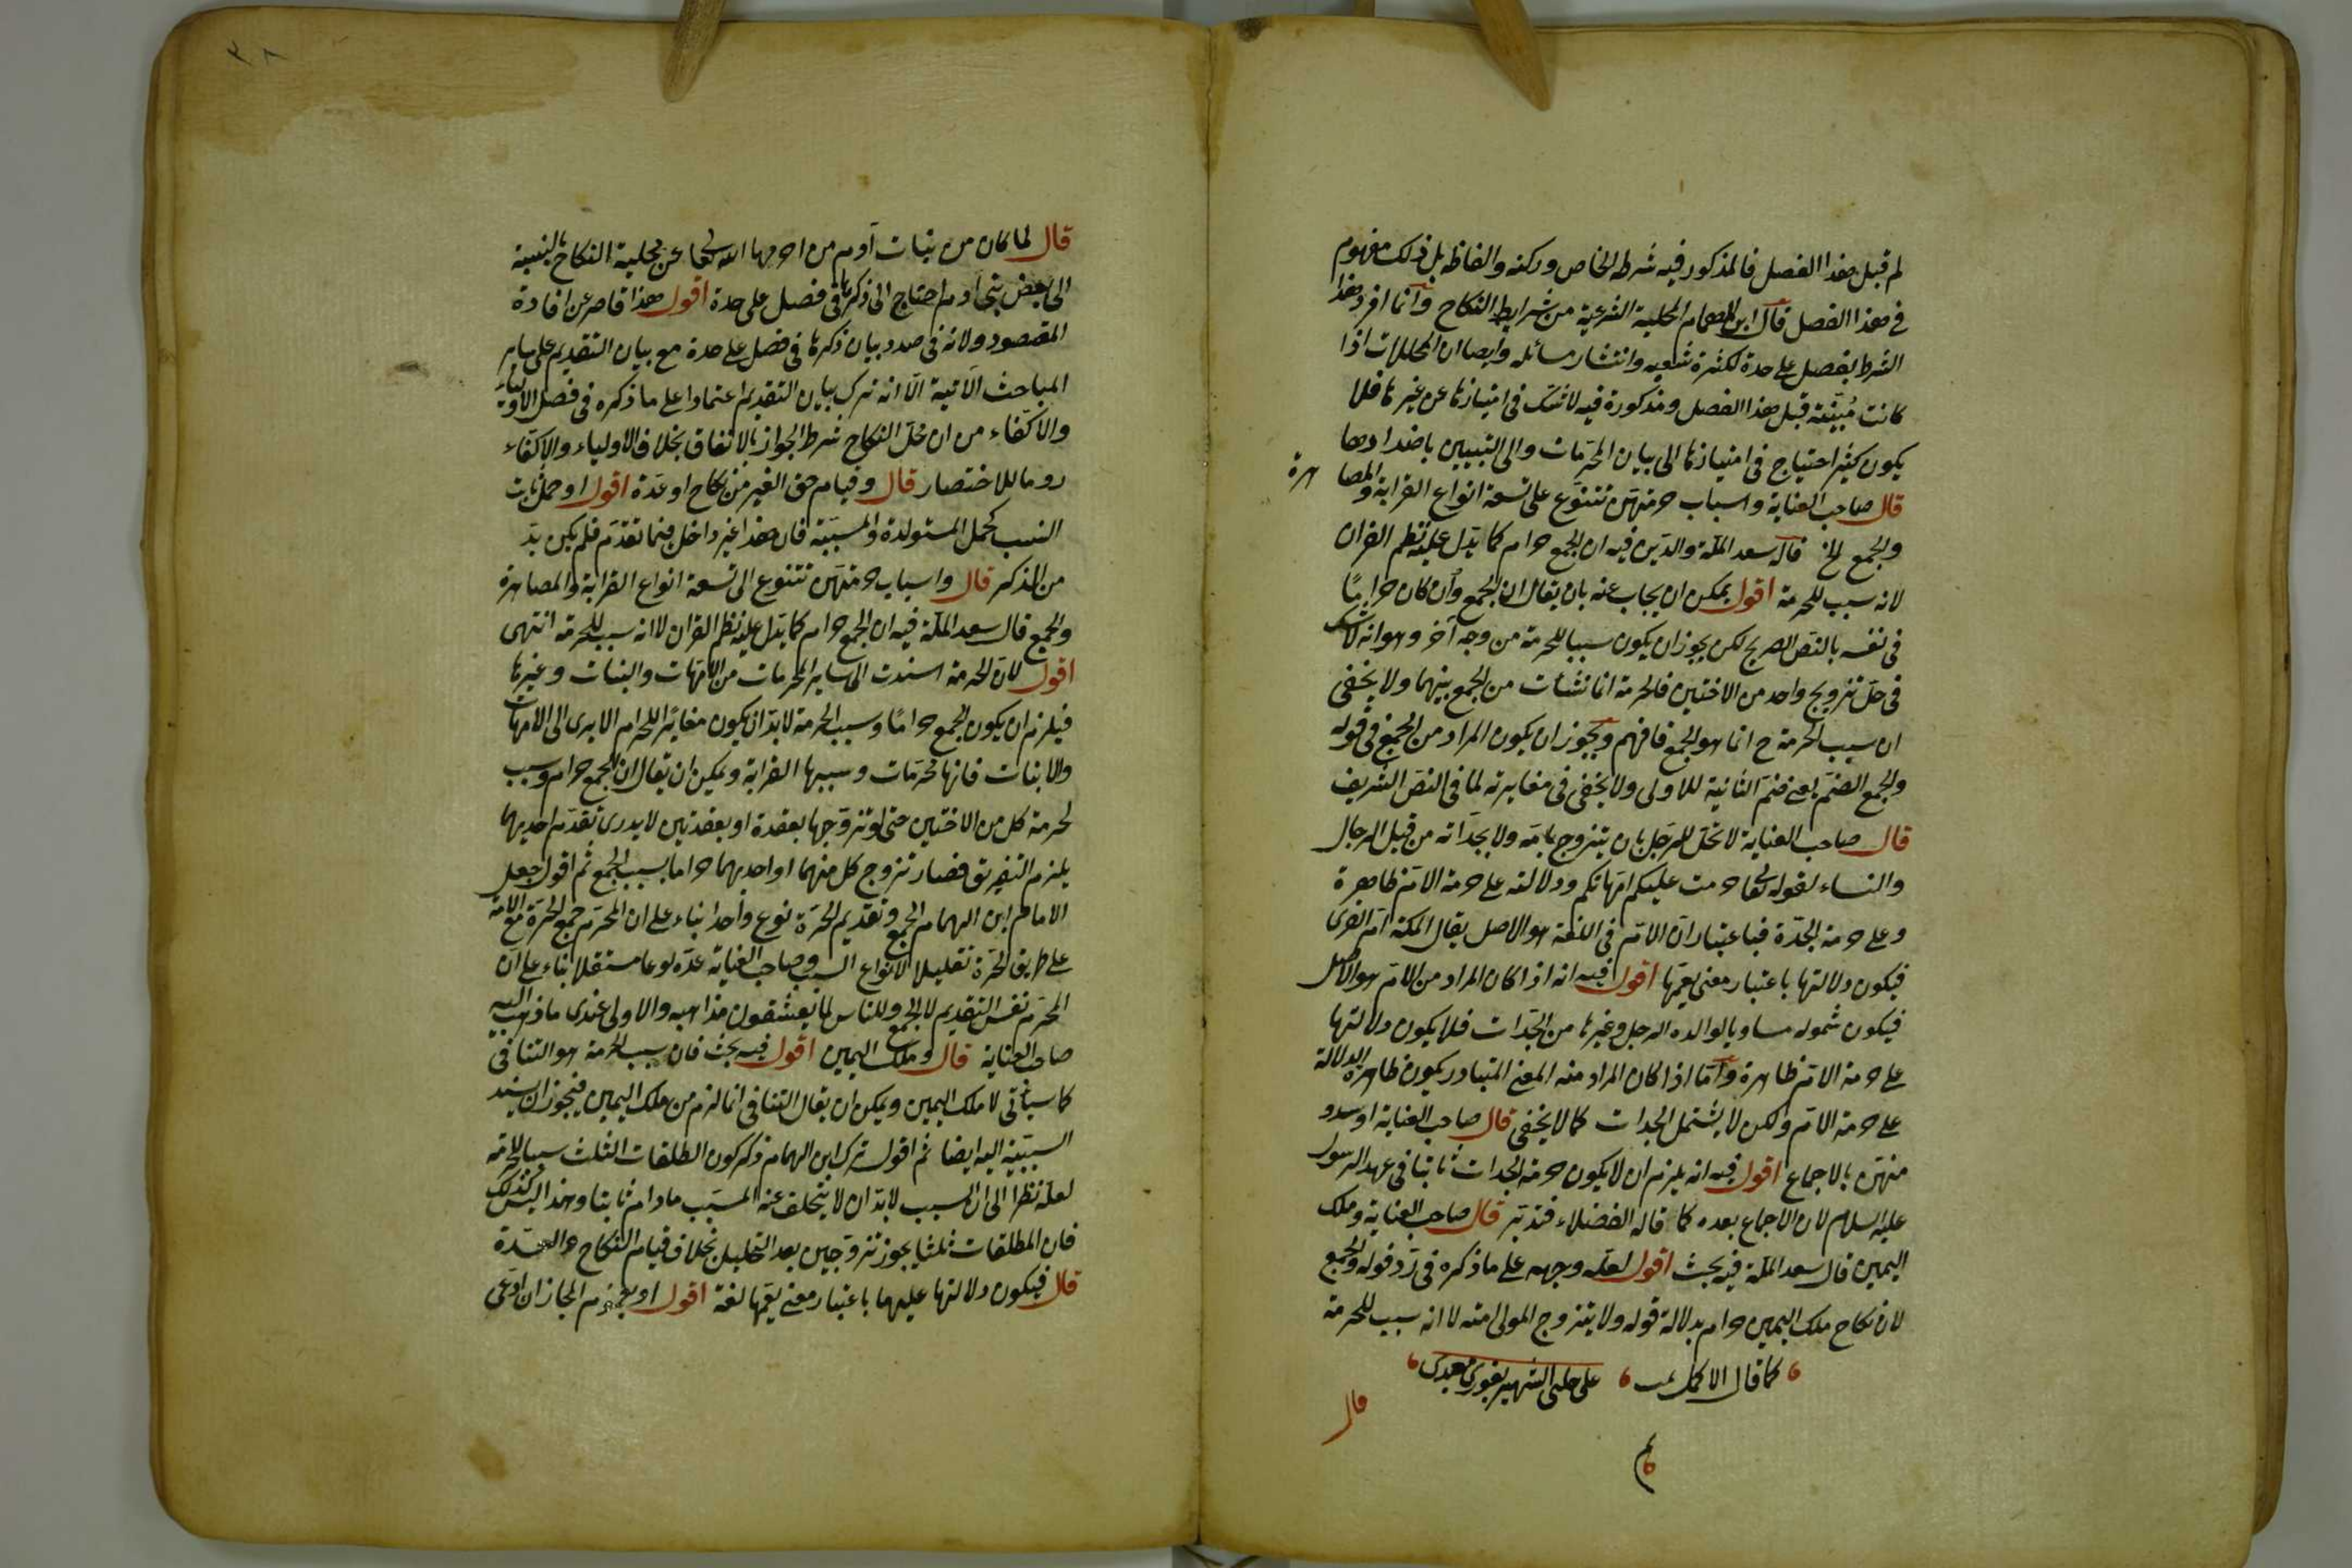 لم قبل هذا الفصل فالمذكور فيه شرطه الخاص وركنه والفاظه بل ذلك مفهوم
في هذا الفصل قال ابن الهمام المحلية الشرعية من شرايط النكاح وانما افرد هذا
الشرط بفصل على حدة لكثرة شعبه وانتشار مسائله وايضا ان المحللات اذا
كانت مبينة قبل هذا الفصل ومذكورة فيه لا شك في امتيازها عن غيرها فلا
يكون كثير احتياج في امتيازها الى بيان المحرمات والى التبيين باضدادها
قال صاحب العناية واسباب حرمتهن تتنوع على تسعة انواع القرابة والمصاهرة
والجمع الخ قال سعد الملة والدين فيه ان الجمع حرام كما يدل عليه نظم القران
لانه سبب للحرمة اقول يمكن ان يجاب عنه بان يقال ان الجمع وان كان حراما
في نفسه بالنص الصريح لكن يجوز ان يكون سببا للحرمة من وجه آخر وهو انه لا شك
في حل تزويج واحد من الاختين فالحرمة انما نشأت من الجمع بينهما ولا يخفى
ان سبب الحرمة ح انما هو الجمع فافهم ويجوز ان يكون المراد من الجمع في قوله
والجمع الضم يعني ضم الثانية للاولى ولا يخفى في مغايرته لما في النص الشريف
قال صاحب العناية لا تحل للرجل بان يتزوج بامه ولا بجداته من قبل الرجال
والنساء لقوله تعالى حرمت عليكم امهاتكم ودلالته على حرمة الام ظاهرة
وعلى حرمة الجدة فباعتبار ان الام في اللغة هو الاصل يقال لمكة ام القرى
فيكون دلالتها باعتبار معنى يعمها اقول فيه انه اذا كان المراد من الام هو الاصل
فيكون شموله مساويا لوالده الرجل وغيرها من الجدات فلا يكون دلالتها
على حرمة الام ظاهرة واما اذا كان المراد منه المعنى المتبادر يكون ظاهرة الدلالة
على حرمة الام ولكن لا يشتمل الجدات كما لا يخفى قال صاحب العناية او
منهن بالاجماع اقول فيه انه يلزم ان لا يكون حرمة الجدات ثابتا في عهد الرسول
عليه السلام لان الاجماع بعده كما قاله الفضلاء فتدبر قال صاحب العناية وملك
اليمين قال سعد الملة فيه بحث اقول لعله وجهه على ما ذكره في رد قوله والجمع
لان نكاح ملك اليمين حرام بدلالة قوله ولا يتزوج المولى امته لا انه سبب للحرمة
كما قال الاكمل على چلبي الشهير
قال
٣٨
قال لما كان من بنات آدم من اخرجها الله تعالى عن محلية النكاح بالنسبة
الى بعض بني آدم احتاج الى ذكرها في فصل على حدة اقول هذا قاصر عن افادة
المقصود ولانه في صدد بيان ذكرها في فصل على حدة مع بيان التقديم على ساير
المباحث الآتية الا انه ترك بيان التقديم اعتمادا على ما ذكره في فصل الاولياء
والاكفاء من ان محل النكاح شرط الجواز بالاتفاق بخلاف الاولياء والاكفاء
روما للاختصار قال وقيام حق الغير من نكاح او عدة اقول او حمل ثابت
النسب كحمل المستولدة والمسبية فان هذا غير داخل فيما تقدم فلم يكن بد
من الذكر قال واسباب حرمتهن تتنوع الى تسعة انواع القرابة والمصاهرة
والجمع قال سعد الملة فيه ان الجمع حرام كما يدل عليه نظم القران لا انه سبب للحرمة انتهى
اقول لان الحرمة اسندت الى ساير المحرمات من الامهات والبنات وغيرها
فيلزم ان يكون الجمع حراما وسبب الحرمة لا بد ان يكون مغايرا للحرام الا يرى الى الامهات
والابنات فانها محرمات وسببها القرابة ويمكن ان يقال ان الجمع حرام وسبب
لحرمة كل من الاختين حتى لو تزوجها بعقدة او بعقدتين لا يدرى تقدم احديهما
يلزم التفريق فصار تزوج كل منهما او احديهما حراما بسبب الجمع ثم اقول جعل
الامام ابن الهمام الجمع وتقديم الحرة نوع واحدا بناء على ان المحرم جمع الحرة مع الامة
على طريق الحرة تقليلا لانواع السبب وصاحب العناية عده نوعا مستقلا بناء على ان
المحرم نفس التقديم لا الجمع وللناس فيما يعشقون مذاهب والاولى عندي ما ذهب اليه
صاحب العناية قال وملك اليمين اقول فيه بحث فان سبب الحرمة هو التنافي
كما سيأتي لا ملك اليمين ويمكن ان يقال التنافي انما لزم من ملك اليمين فيجوز ان يسند
السببية اليه ايضا ثم اقول ترك ابن الهمام ذكر كون الطلقات الثلث سببا للحرمة
لعله نظرا الى ان السبب لا بد ان لا يتخلف عنه المسبب ما دام ثابتا وهذا ليس كذلك
فان المطلقات ثلثا يجوز تزوجهن بعد التحليل بخلاف قيام النكاح والعدة
قال فيكون دلالتها عليهما باعتبار معنى يعمها لغة اقول او بعموم المجاز ان ادعى